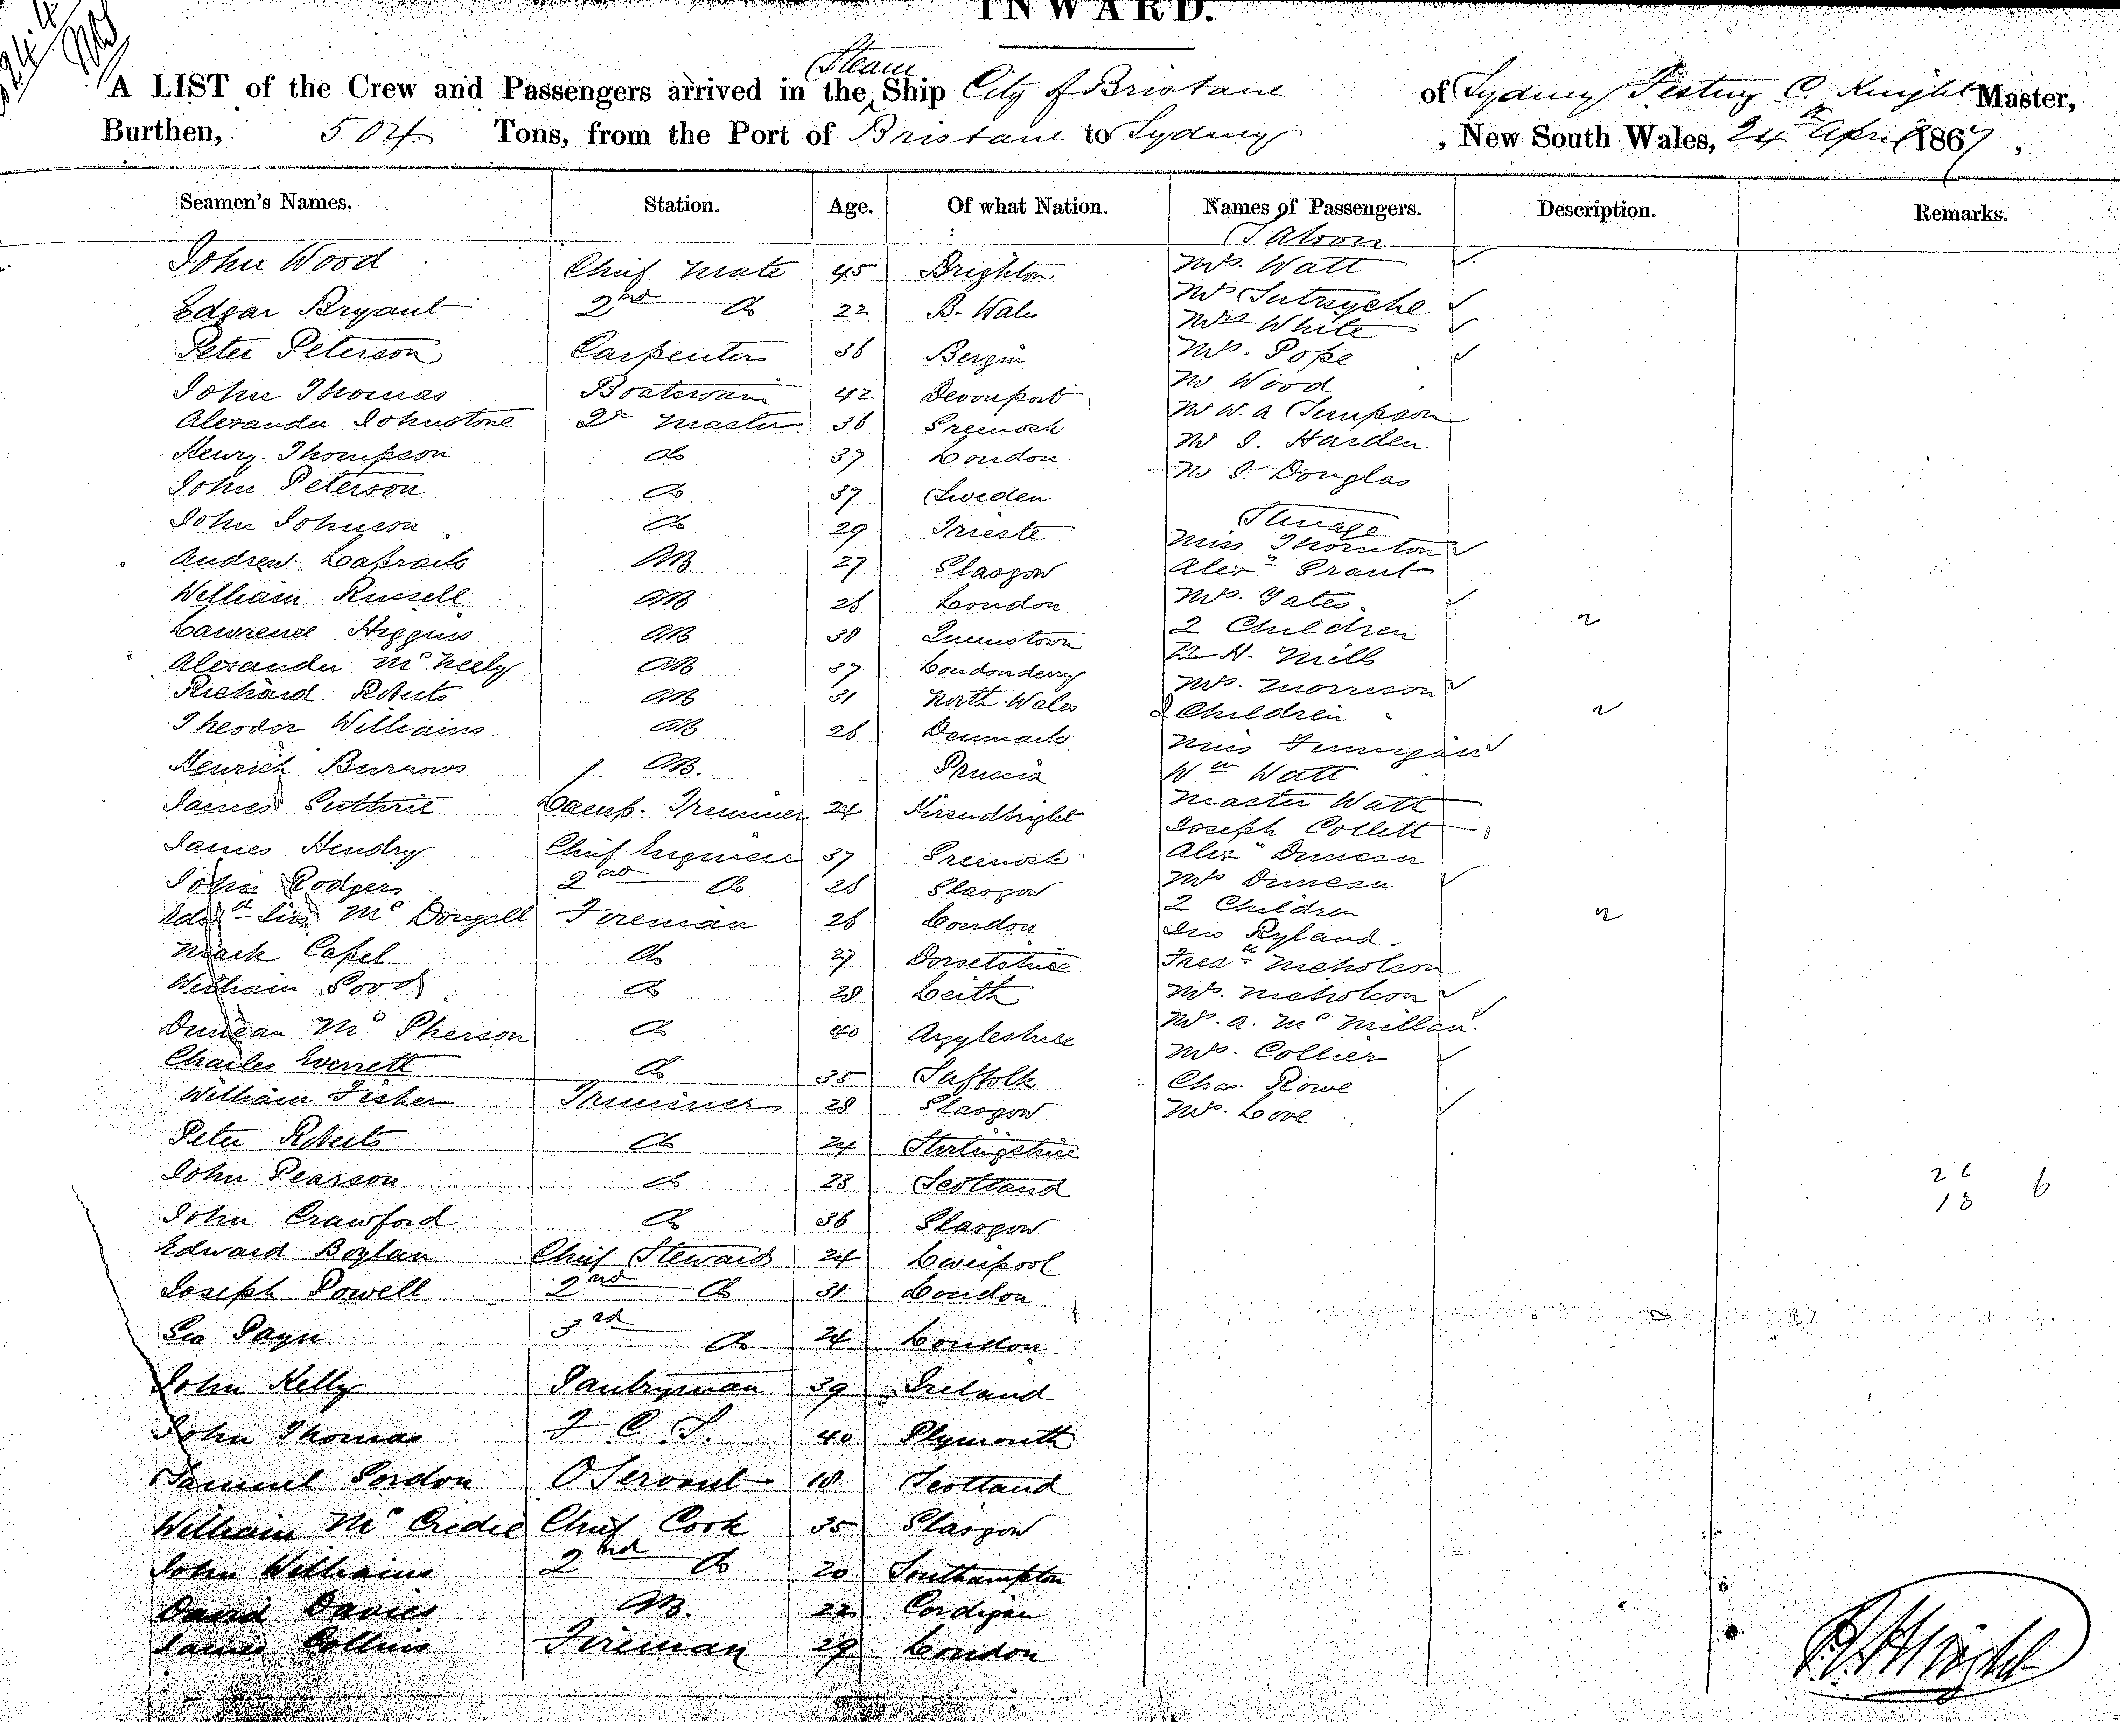 INWARD.
A LIST of the Crew and Passengers arrived in the Steam Ship City of Brisbane of Sydney C. Knight Master,
Burthen, 504 Tons, from the Port of Brisbane to Sydney, New South Wales, 24th April 1867,
Seamen's Names. Station. Age. Of what Nation. Names of Passengers. Description. Remarks.
Saloon
John Wood Chief Mate 45 Brighton Mrs. Watt
Edgar Bryant 2nd Do 22 Mr
Mrs White
Peter Peterson Carpenter 36 Bergin Mrs. Pope
John Thomas Boatswain 42 Devonport Mr Wood
Alexander Johnstone Qr Master 36 Greenock Mr W. A Simpson
Henry Thompson Do 37 London Mr J. Harden
John Peterson Do 37 Sweden Mr J. Douglas
John Johnson Do 29 Trieste Steerage
Miss Thornton
Andrew AB 27 Glasgow Alexr Grant
William Russell AB 26 London Mrs. Yates
Lawrence Higgins AB 38 Queenstown 2 Children
Alexander McNeely AB 37 Londonderry H. Mills
Richard Roberts AB 31 North Wales Mrs. Morrison
2 Children
Theodor Williams AB 26 Denmark Miss
Henrich Burrows AB. Prussia Wm Watt
James Guthrie Lamp. Trimmer 24 Kircudbright Master Watt
Joseph Collett
James Hendry Chief Engineer 37 Greenock Alexr Duncan
John Rodgers 2nd Do 26 Glasgow Mrs Duncan
McDougall Fireman 26 London 2 Children
Jno Ryland
Mark Capel Do 27 Dorsetshire Fredk Nicholson
William Good Do 28 Leith Mrs. Nicholson
Duncan McPherson Do 40 Argyleshire Mrs. A. McMillan
Charles Everett Do 35 Suffolk Mrs. Collier
William Fisher Trimmer 28 Glasgow Chas Rowe
Mrs. Love
Peter Roberts Do 24 Sterlingshire
John Pearson Do 23 Scotland
John Crawford Do 36 Glasgow
Edward Boylan Chief Steward 24 Liverpool
Joseph Powell 2nd Do 31 London
Geo Payn 3rd Do 24 London
John Kelly Pantryman 39 Ireland
John Thomas F C S. 40 Plymouth
Samuel Gordon O Servant 18 Scotland
William McCredie Chief Cook 35 Glasgow
John Williams 2nd Do 20 Southampton
David Davies AB. 22 Cardigan
James Collins Fireman 29 London